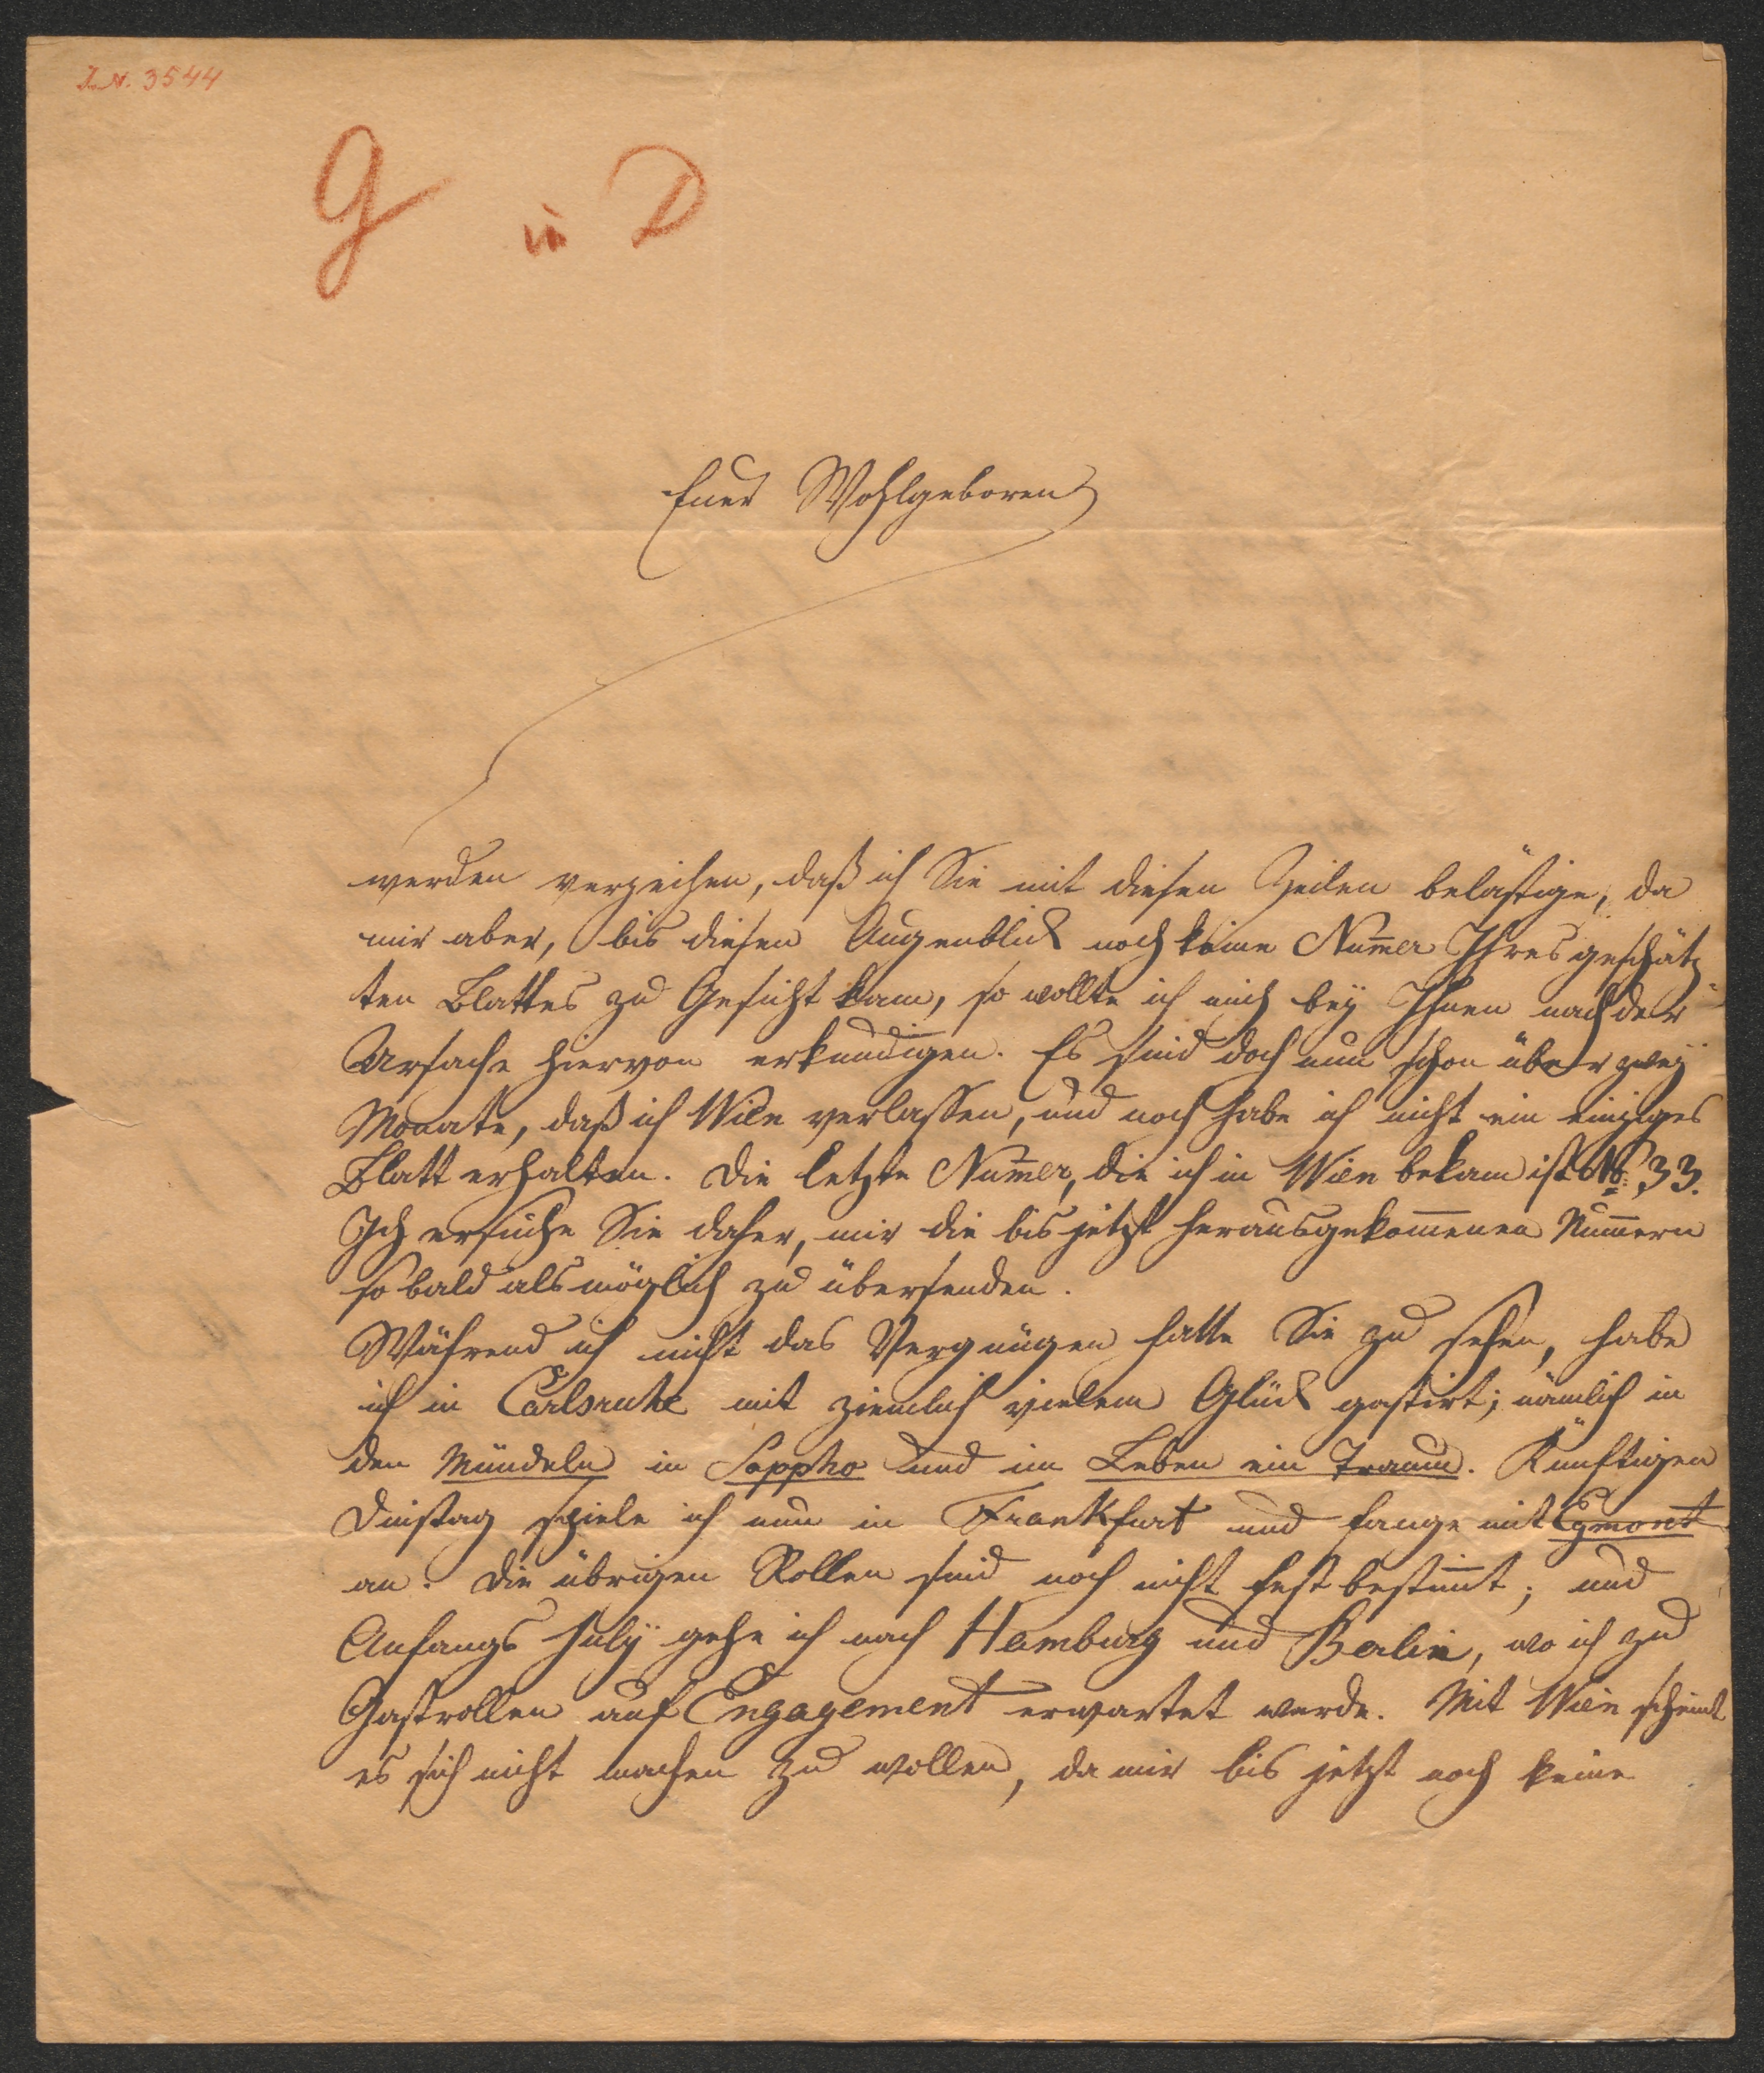 I. N. 3544
G in D
Euer Wohlgeboren
werden verzeihen, daß ich Sie mit diesen Zeilen belästige, da
mir aber, bis diesen Augenblick noch keine Num̅er Ihres geschätz-
ten Blattes zu Gesicht kam, so wollte ich mich bey Ihnen nach der
Ursache hiervon erkundigen. Es sind doch nun schon über zwey
Monate, daß ich Wien verlassen, und noch habe ich nicht ein einziges
Blatt erhalten. Die letzte Num̅er, die ich in Wien bekam ist No: 33.
Ich ersuche Sie daher, mir die bis jetzt herausgekom̅enen Num̅ern
so bald als möglich zu übersenden.
Während ich nicht das Vergnügen hatte Sie zu sehen, habe
ich in Carlsruhe mit ziemlich vielem Glück gastirt; nämlich in
den Mündeln in Sappho und im Leben ein Traum. Künftigen
Dinstag spiele ich nun in Frankfurt und fange mit Egmont
an. Die übrigen Rollen sind noch nicht fest bestim̅t; und
Anfangs July gehe ich nach Hamburg und Berlin, wo ich zu
Gastrollen auf Engagement erwartet werde. Mit Wien scheint
es sich nicht machen zu wollen, da mir bis jetzt noch keine